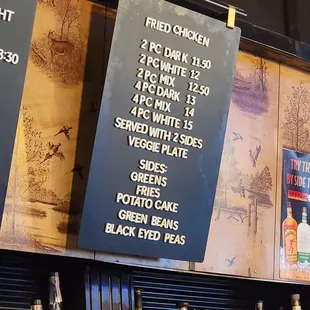 HT
8:30
FRIED CHICKEN
2 PC DARK 11.50
2 PC WHITE 12
2 PC MIX 12.50
4 PC DARK 13
4 PC MIX 14
4 PC WHITE 15
SERVED WITH 2 SIDES
VEGGIE PLATE
SIDES:
GREENS
FRIES
POTATO CAKE
GREEN BEANS
BLACK EYED PEAS
TRY TH
BY SIDE